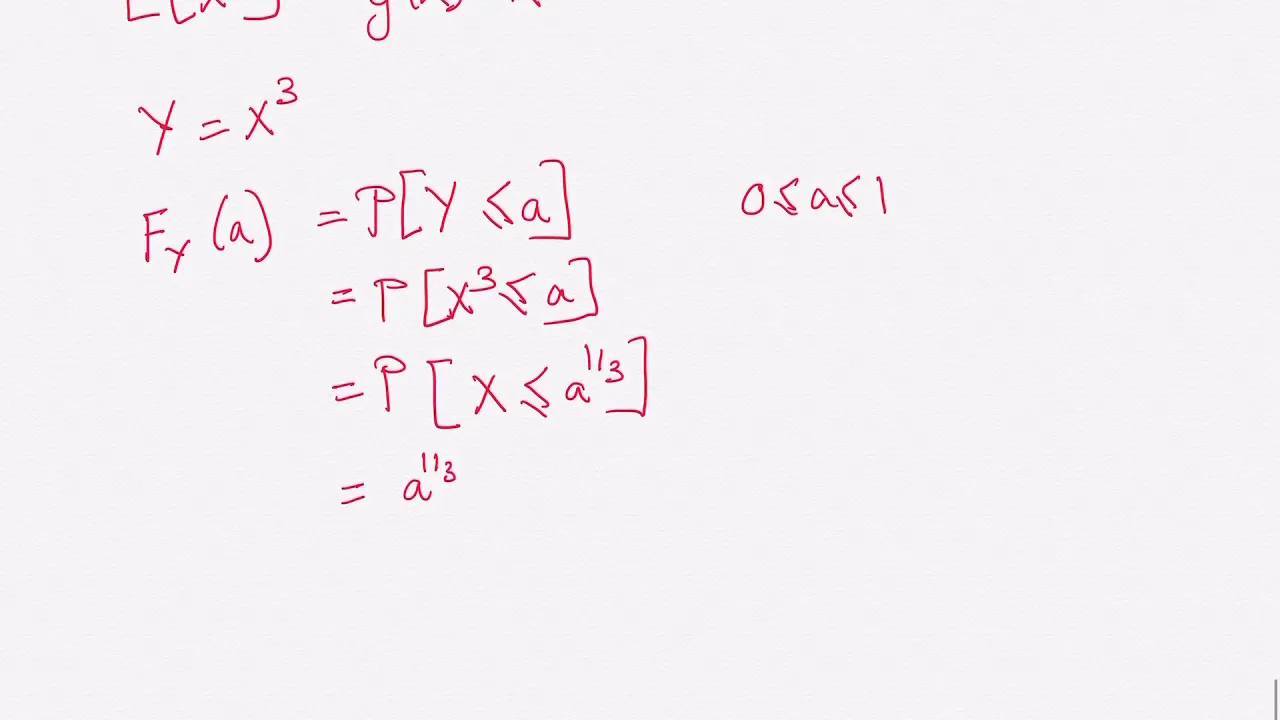 Y = X³
F_Y (a) = P[Y ≤ a] 0 ≤ a ≤ 1
= P[X³ ≤ a]
= P[X ≤ a^{1/3}]
= a^{1/3}